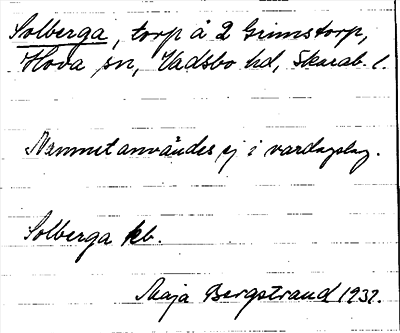 Solberga, torp å 2 Grimstorp,
Hova sn, Vadsbo hd, Skarab. l.
Namnet användes ej i vardagslag.
Solberga kb.
Maja Bergstrand 1937.